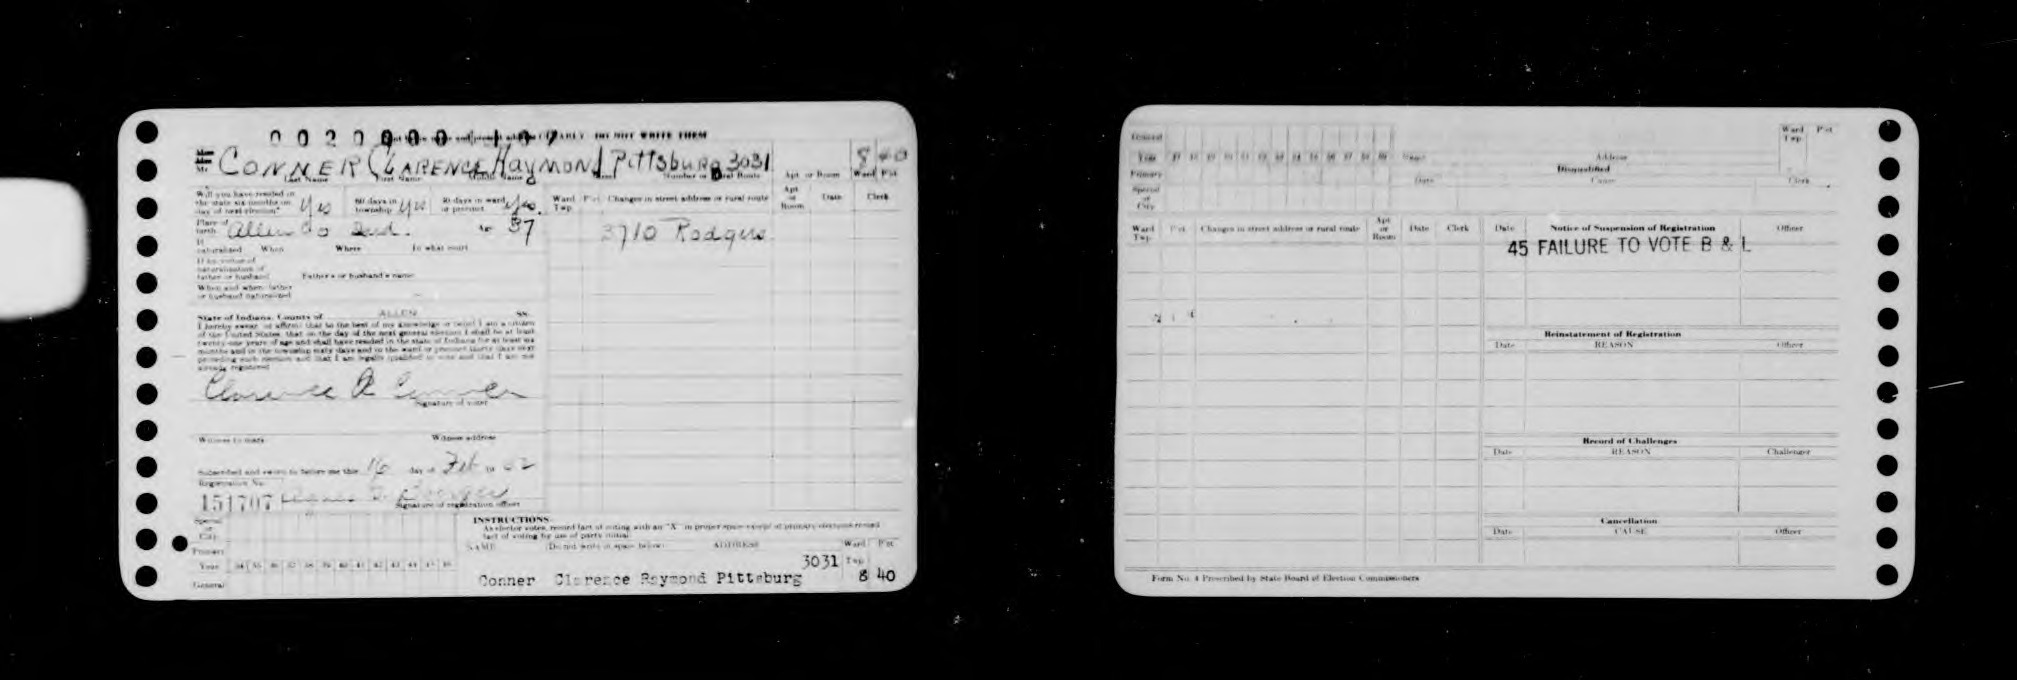 0020000 107
CLEARLY DO NOT WRITE THEM
Mr. CONNER CLARENCE RAYMOND Pittsburg 3031 8 40
Last Name First Name Middle Name Street Number or Rural Route Apt or Room Ward Pct
Will you have resided in the state six months on day of next election? Yes 60 days in township Yes 30 days in ward or precinct Yes.
Ward Twp. Pct. Changes in street address or rural route Apt or Room Date Clerk
Place of birth Allen Co Ind. Age 37
3710 Rodgers
If naturalized When Where In what court
If by virtue of naturalization of father or husband Father's or husband's name
When and where father or husband naturalized
State of Indiana, County of ALLEN SS.
I hereby swear or affirm that to the best of my knowledge or belief I am a citizen
of the United States, that on the day of the next general election I shall be at least
twenty-one years of age and shall have resided in the state of Indiana for at least six
months and in the township sixty days and in the ward or precinct thirty days next
preceding such election and that I am legally qualified to vote and that I am not
already registered
Clarence R Conner
Signature of voter
Witness to mark Witness address
Subscribed and sworn to before me this 16 day of Feb
Registration No.
151707
Signature of registration officer
INSTRUCTIONS
As elector votes, record fact of voting with an "X" in proper space except at primary elections record
fact of voting by use of party initial
Special or City
Primary
Year 34 35 36 37 38 39 40 41 42 43 44 45 46
General
NAME (Do not write in space below) ADDRESS Ward Pct
3031 Twp
Conner Clarence Raymond Pittsburg 8 40
General
Year 37 38 39 40 41 42 43 44 45 46 47 48 49 Name Address
Ward Twp. Pct
Primary Disqualified
Date Cause Clerk
Special or City
Ward Twp. Pct. Changes in street address or rural route Apt or Room Date Clerk
Date Notice of Suspension of Registration Officer
45 FAILURE TO VOTE B & L
Reinstatement of Registration
Date REASON Officer
Record of Challenges
Date REASON Challenger
Cancellation
Date CAUSE Officer
Form No. 4 Prescribed by State Board of Election Commissioners